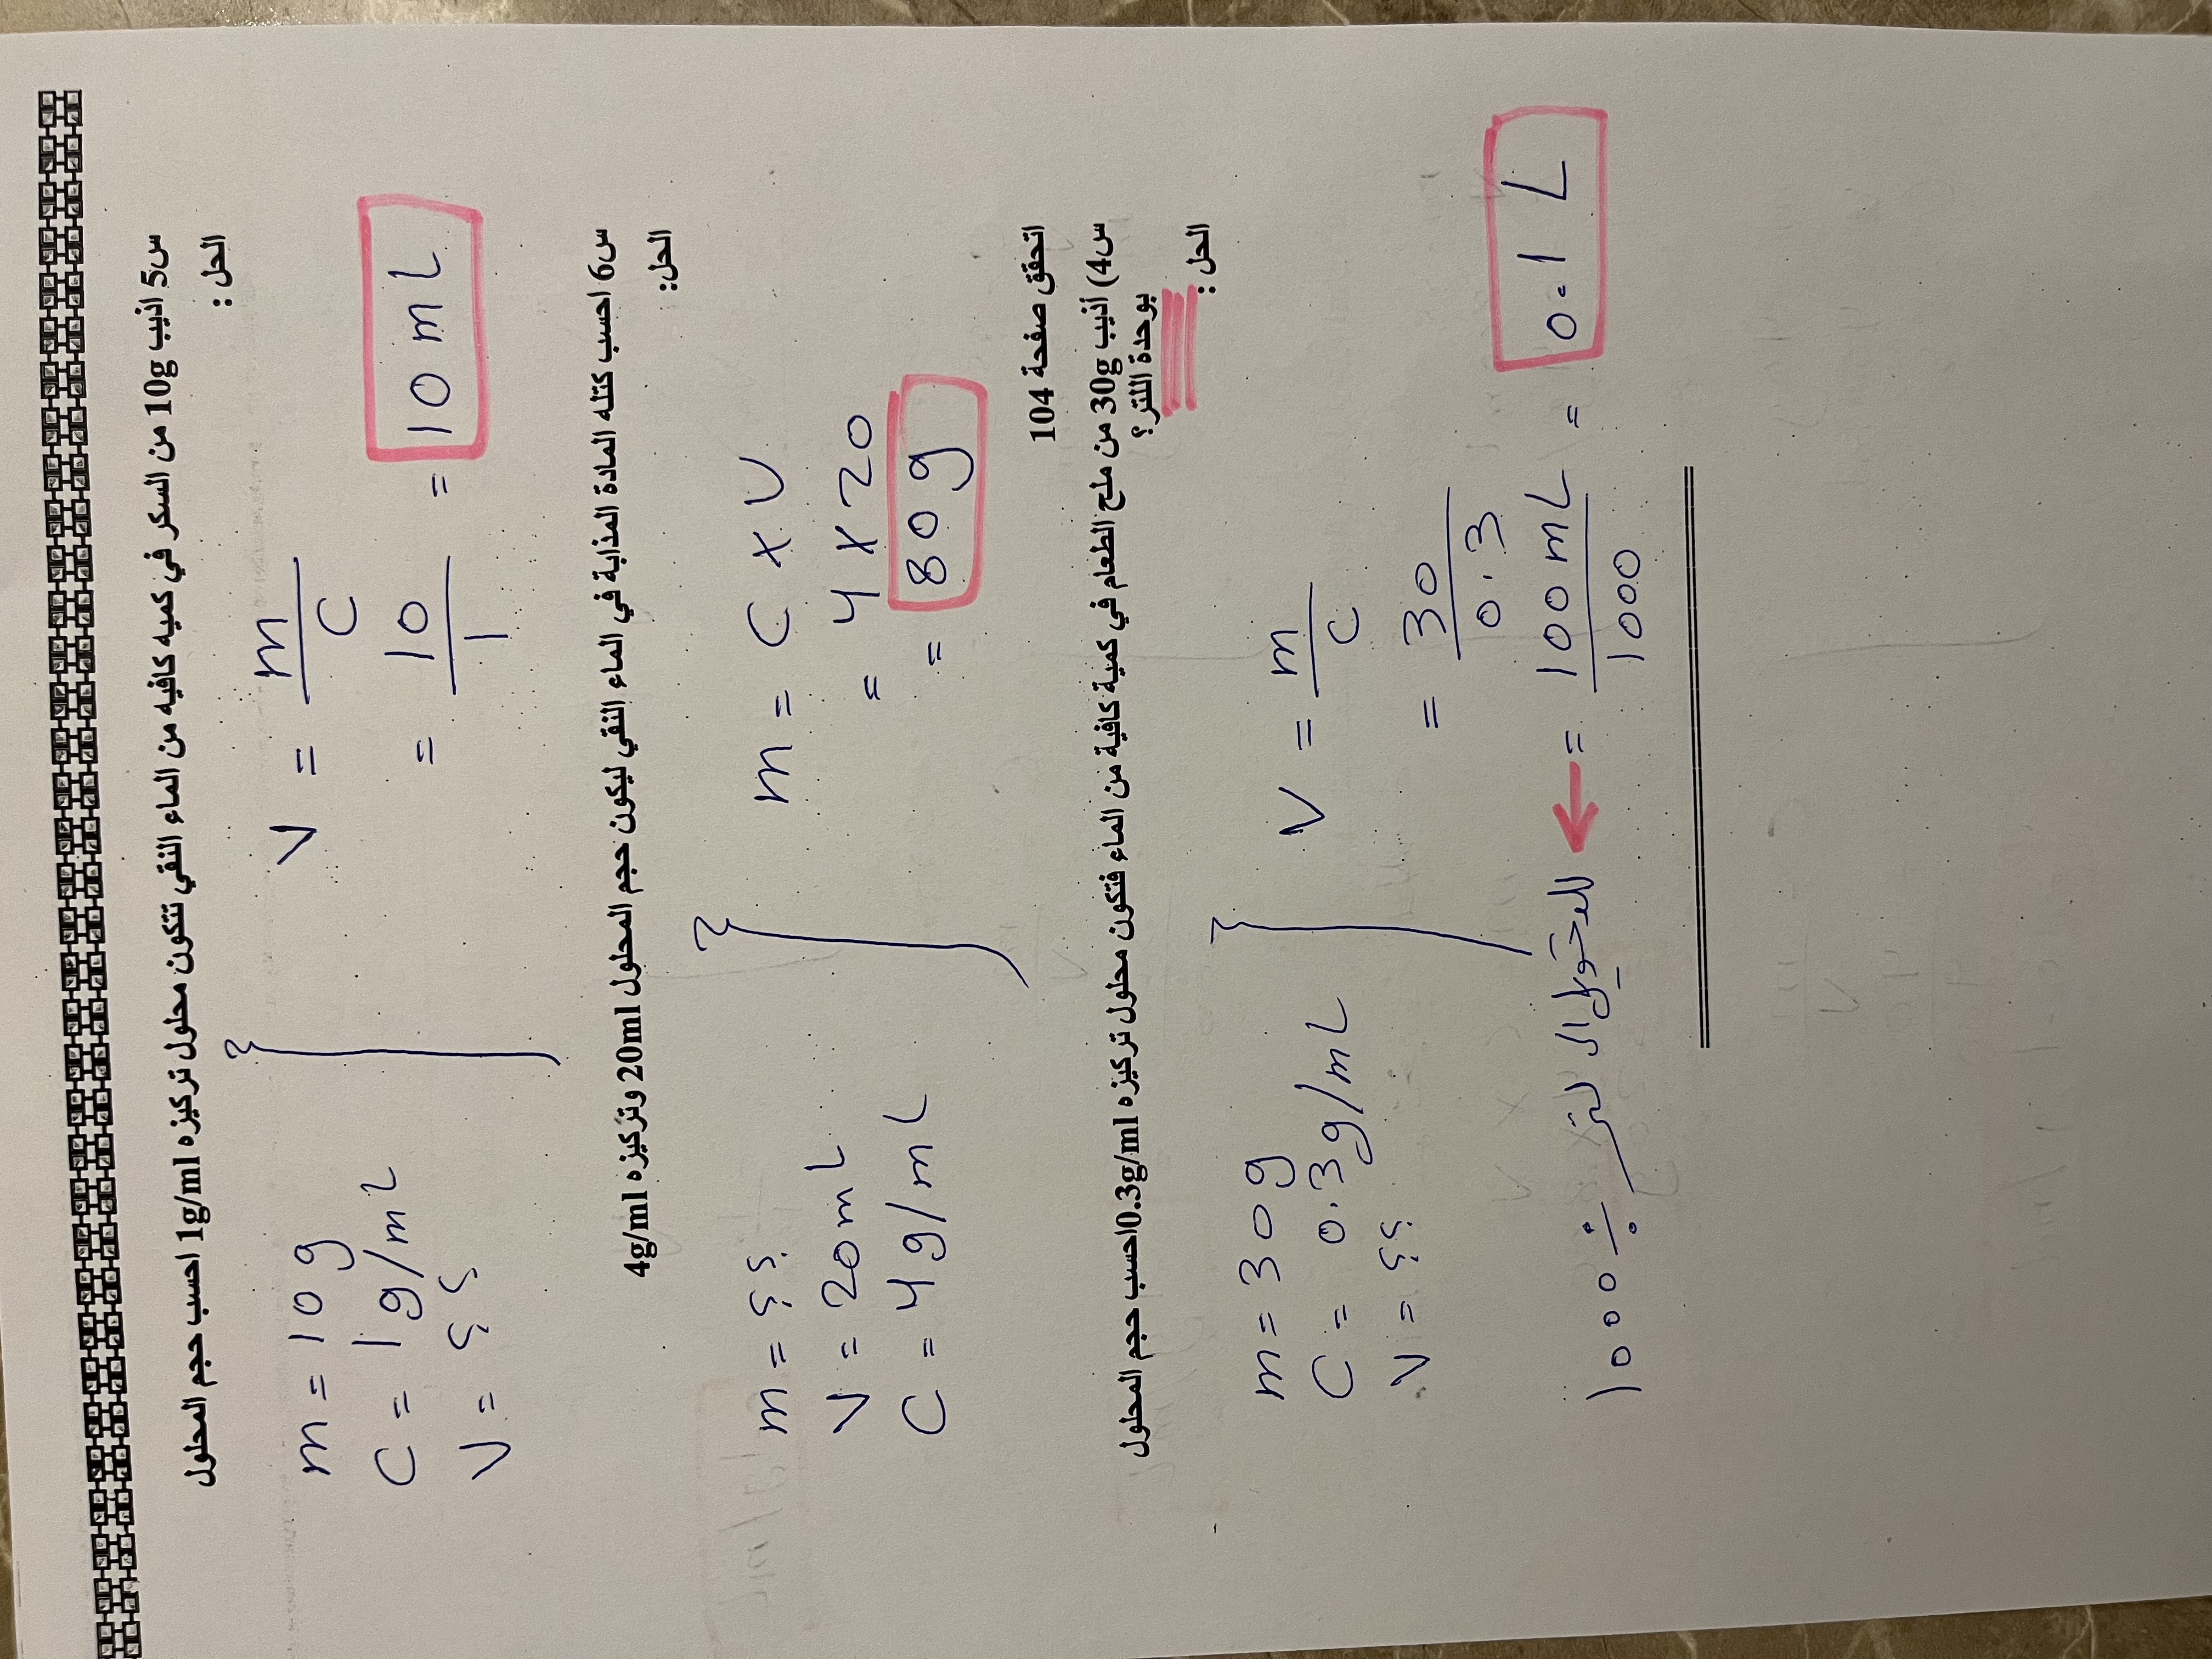 س5 اذيب 10g من السكر في كميه كافيه من الماء النقي تتكون محلول تركيزه 1g/ml احسب حجم المحلول
الحل :
m = 10 g
C = 1 g/mL
V = ؟؟
V = m / C
= 10 / 1 = 10 mL
س6 احسب كتله المادة المذابة في الماء النقي ليكون حجم المحلول 20ml وتركيزه 4g/ml
الحل:
m = ؟؟
V = 20 mL
C = 4 g/mL
m = C × V
= 4 × 20
= 80 g
اتحقق صفحة 104
س4) أذيب 30g من ملح الطعام في كمية كافية من الماء فتكون محلول تركيزه 0.3g/mlاحسب حجم المحلول
بوحدة اللتر؟
الحل :
m = 30 g
C = 0.3 g/mL
V = ؟؟
V = m / C
= 30 / 0.3
= 100 mL / 1000 = 0.1 L
للتحويل الى لتر ÷ 1000